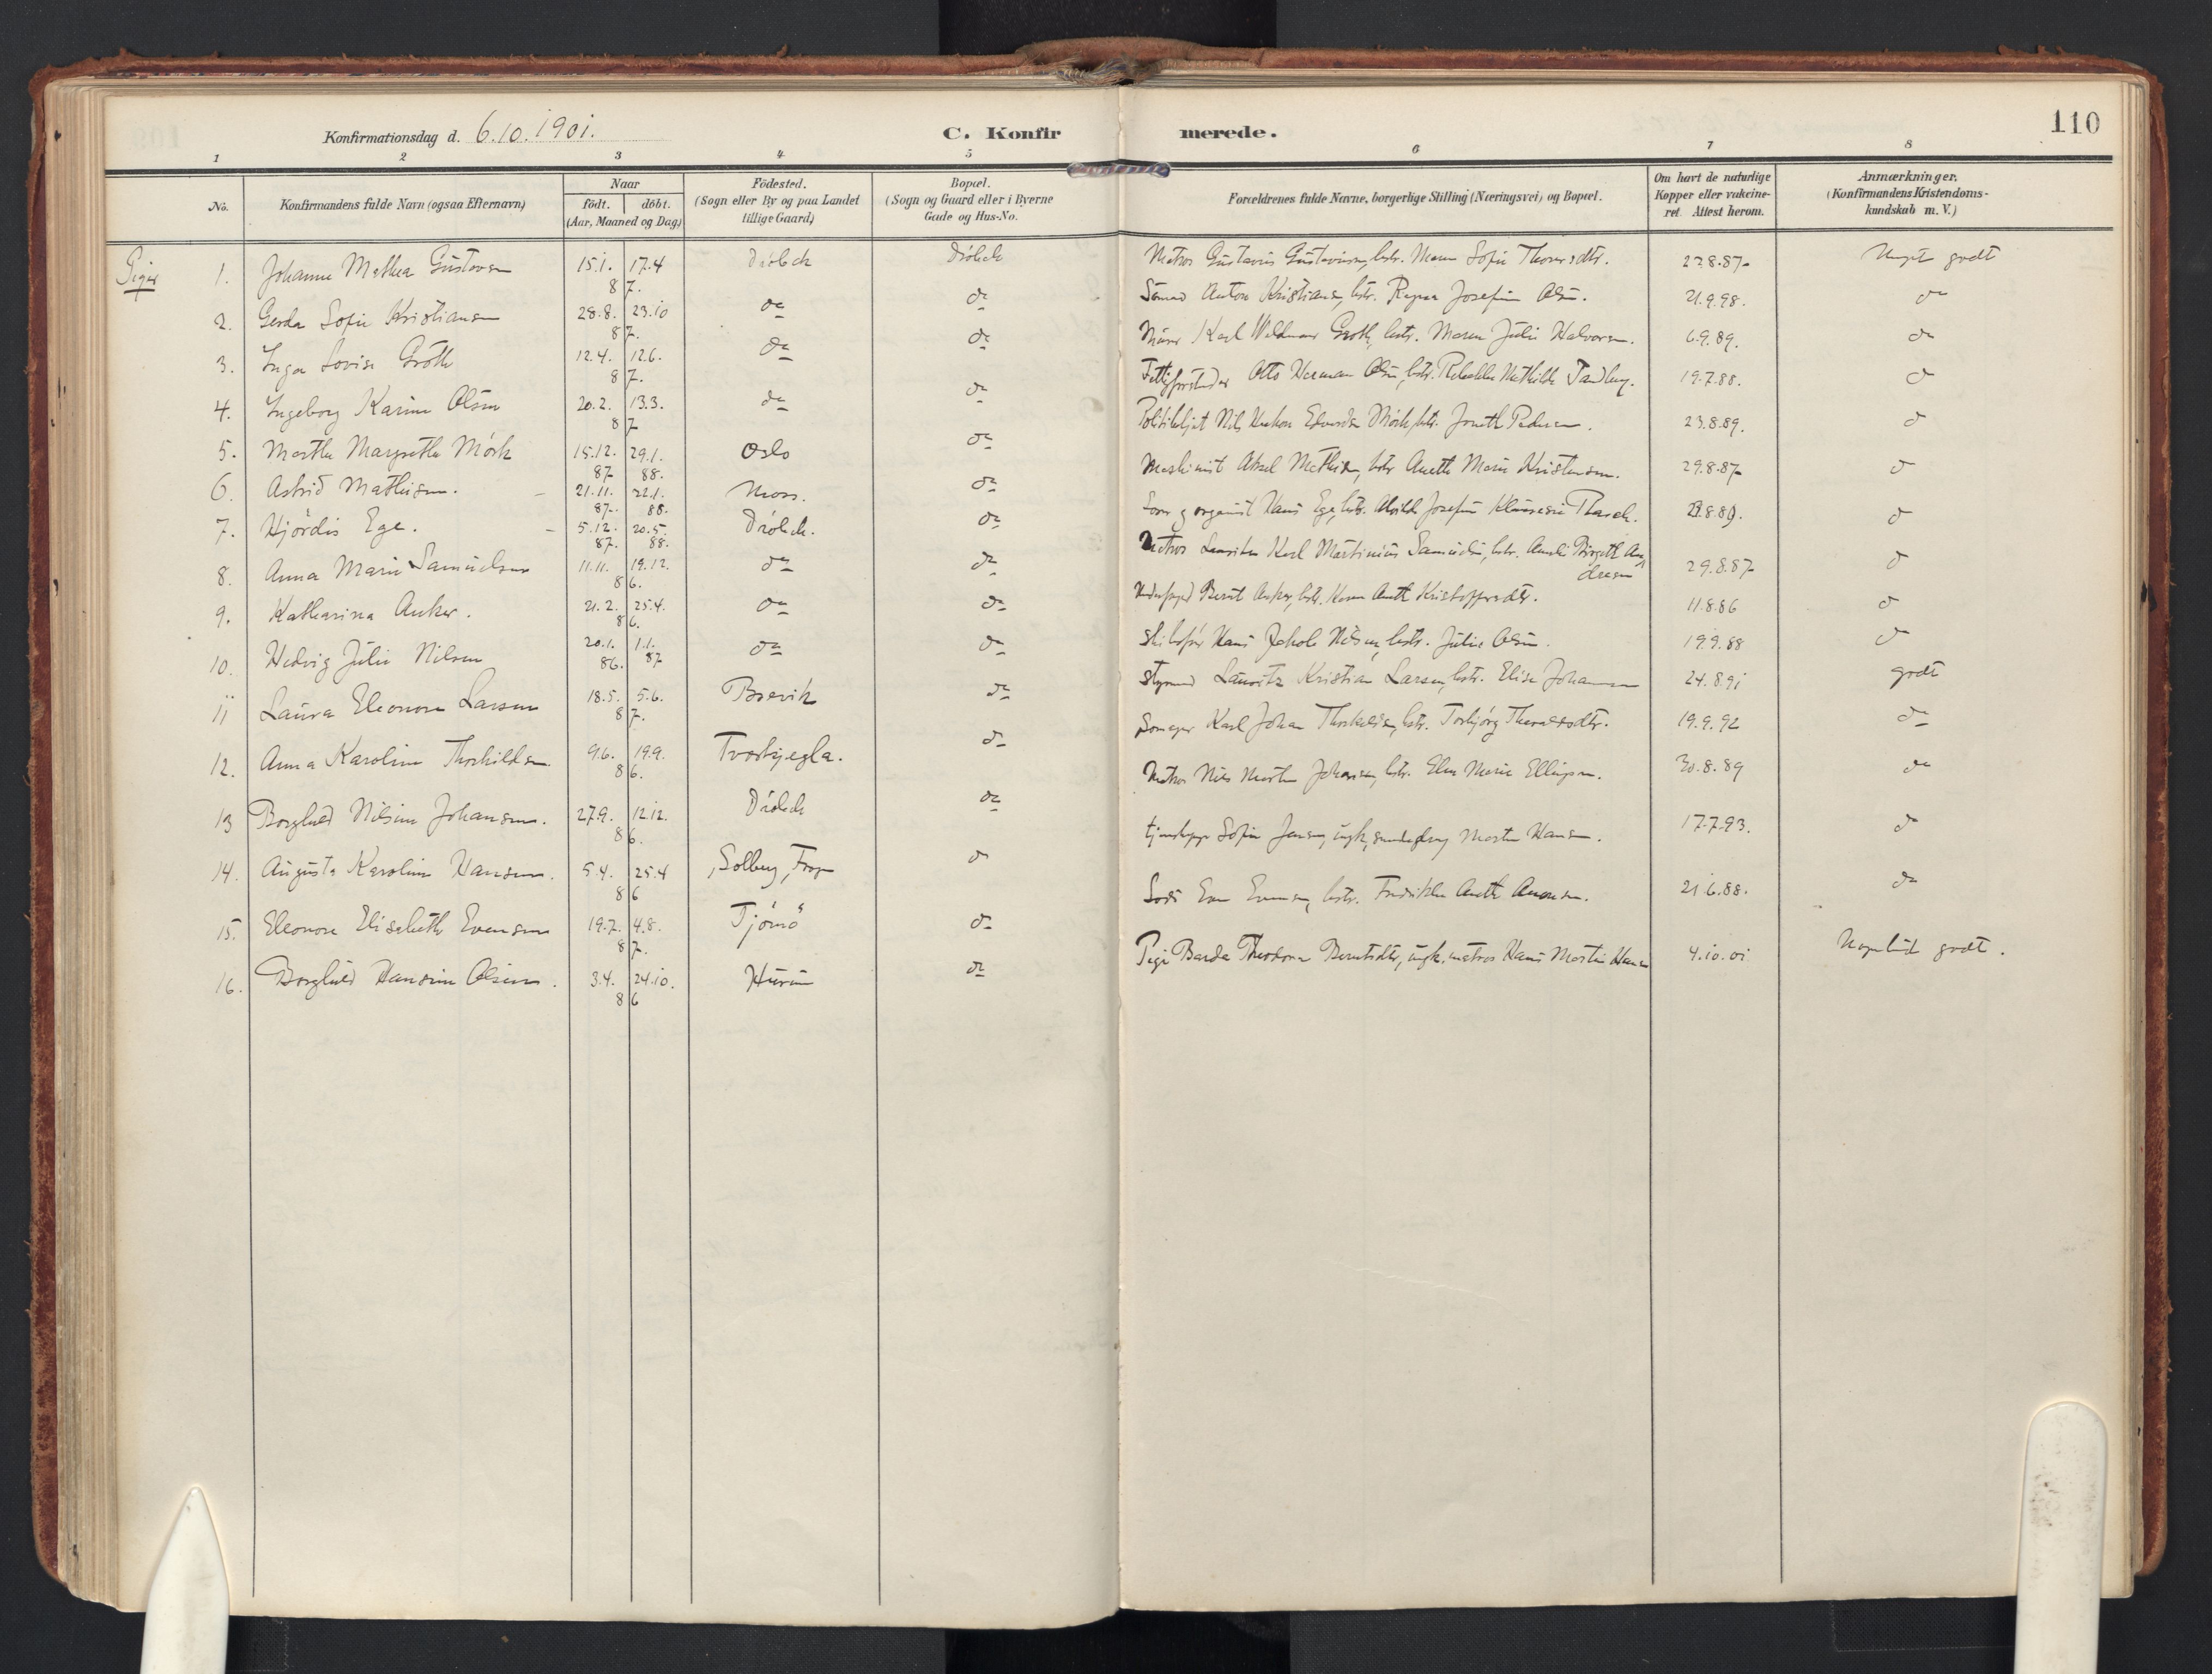 110
Konfirmationsdag d. 6.10.1901.
C. Konfirmerede.
1 2 3 4 5 6 7 8
No.
Konfirmandens fulde Navn (ogsaa Efternavn)
Naar
födt. döbt.
(Aar, Maaned og Dag)
Födested.
(Sogn eller By og paa Landet
tillige Gaard)
Bopæl.
(Sogn og Gaard eller i Byerne
Gade og Hus-No.
Forældrenes fulde Navne, borgerlige Stilling (Næringsvei) og Bopæl.
Om havt de naturlige
Kopper eller vakcine-
ret. Attest herom.
Anmærkninger.
(Konfirmandens Kristendoms-
kundskab m. V.)
Piger
1. Johanne Mathea Gustavsen 15.1. 17.4 87. Dröbak Dröbak Matros Gustavus Gustavusen, hstr. Maren Sofie 23.8.87. Meget godt
2. Gerda Sofie Kristiansen 28.8. 23.10 87. do do Sömand Anton Kristiansen, hstr. Josefine Olsen. 21.9.98. do
3. Inga Lovise Groth 12.4. 12.6. 87. do do Murer Karl Groth, hstr. Maren Julie Halvorsen. 6.9.89. do
4. Ingeborg Karine Olsen 20.2. 13.3. 87 do do Otto Herman Olsen, hstr. Rebekka Mathilde Tandberg. 19.7.88. do
5. Martha Margrethe Mörk 15.12. 29.1. 87 88. Oslo do Politibetjent Nils Edvardsen Mörk, hstr. Pedersen. 23.8.89. do
6. Astrid Mathisen. 21.11. 22.1. 87. 88. Moss. do Maskinist Aksel Mathisen, hstr. Anette Marie Kristensen. 29.8.87 do
7. Hjördis Ege. 5.12. 20.5. 87. 88. Dröbak. do organist Hans Ege, hstr. Alvilde Josefine 8.89. do
8. Anna Marie Samuelsen 11.11. 19.12. 86. do do Matros Karl Martinius Samuelsen, hstr. Birgitte Andresen 29.8.87 do
9. Katharina Anker. 21.2. 25.4. 86. do do Bernt Anker, hstr. Anette Kristoffersdtr. 11.8.86 do
10. Hedvig Julie Nilsen 20.1. 1.1. 86. 87 do do Skibsförer Hans Jakob Nilsen, hstr. Julie Olsen. 19.9.88 do
11 Laura Eleonora Larsen 18.5. 5.6. 87. Brevik do Styrmand Lauritz Kristian Larsen, hstr. Elise Johannesen 24.8.91 godt
12. Anna Karoline Thorkildsen. 9.6. 19.9. 86. do Karl Johan Thorkildsen, hstr. Torbjörg 19.9.92 do
13 Borghild Nilsine Johansen. 27.9. 12.12. 86. Dröbak do Matros Nils Martin Johansen, hstr. Marie Ellingsen. 30.8.89 do
14. Augusta Karoline Hansen. 5.4. 25.4 86 Solberg, Frogn do Sofie Jensen, ugk, Martin Hansen. 17.7.93. do
15. Eleonora Elisabeth Evensen 19.7. 4.8. 87. Tjömö do Lods Even Evensen, hstr. Fredrikke Anette 21.6.88. do
16. Borghild Hansine Olsen. 3.4. 24.10. 86 Hurum do Pige Theodora Berntsdtr, ugk. matros Hans Martin Hansen 4.10.01 Nogenlunde godt.